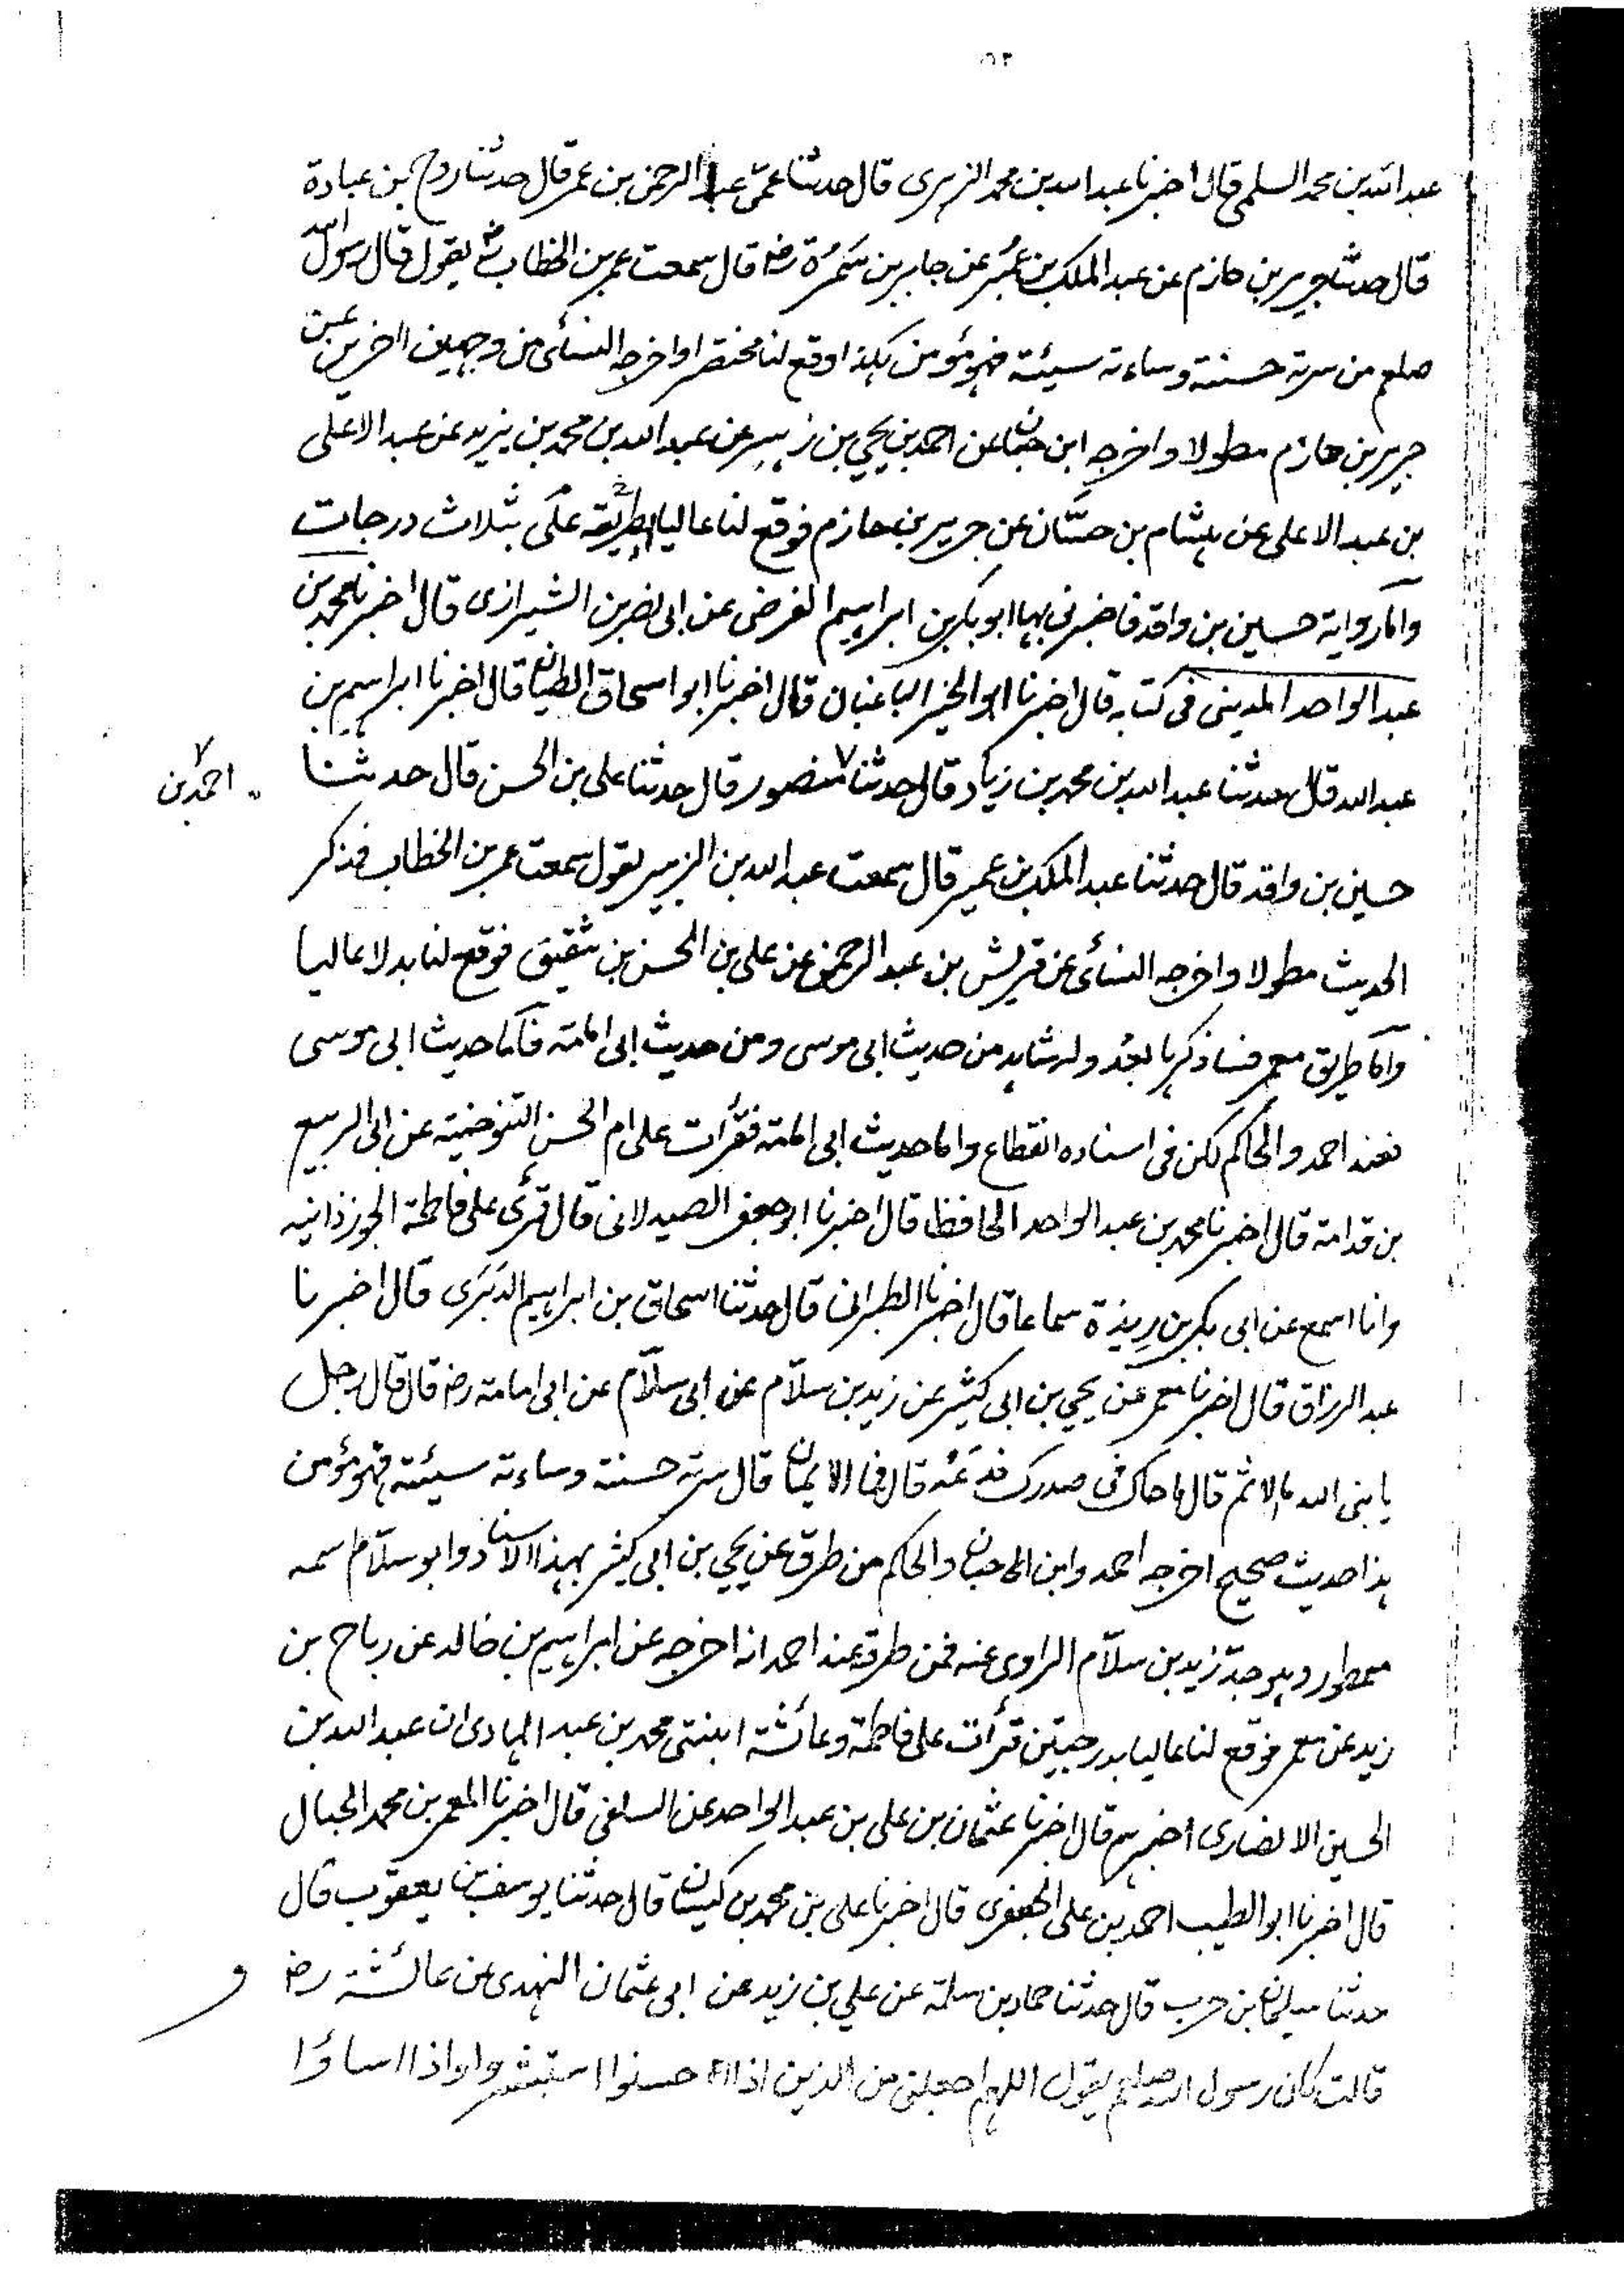 ٥٢
عبد الله بن محمد السلمى قال اخبرنا عبد الله بن محمد الزهرى قال حدثنا عمى عبد الرحمن بن عمر قال حدثنا روح بن عبادة
قال حدثنا جرير بن حازم عن عبد الملك بن عمير عن جابر بن سَمُرَة رضـ قال سمعت عمر بن الخطاب رضـ يقول قال رسول الله
صلعم من سرته حسنة وساءته سيئة فهو مؤمن هكذا وقع لنا مختصرا واخرجه النسائى من وجهين اخرين عن
جرير بن حازم مطولا واخرجه ابن حبان عن احمد بن يحيى بن زهير عن عبد الله بن محمد بن يزيد عن عبد الاعلى
بن عبد الاعلى عن هشام بن حسّان عن جرير بن حازم فوقع لنا عاليا بطريقه على بثلاث درجات
وامّا رواية حسين بن واقد فاخبرنى بها ابو بكر بن ابراهيم الفرضى عن ابى نصر بن الشيرازى قال اخبرنا محمد بن
عبد الواحد المدينى فى كتابه قال اخبرنا ابو الخير الباغبان قال اخبرنا ابو اسحاق الطيان قال اخبرنا ابراهيم بن
عبد الله قال حدثنا عبد الله بن محمد بن زياد قال حدثنا ٧ منصور قال حدثنا على بن الحسن قال حدثنا
٧ احمد بن
حسين بن واقد قال حدثنا عبد الملك بن عمير قال سمعت عبد الله بن الزبير يقول سمعت عمر بن الخطاب فذكر
الحديث مطولا واخرجه النسائى عن قريش بن عبد الرحمن عن على بن الحسن بن شقيق فوقع لنا بدلا عاليا
وامّا طريق معمر فساذكرها بعدُ وله شاهد من حديث ابى موسى ومن حديث ابى امامة فامّا حديث ابى موسى
فعند احمد والحاكم لكن فى اسناده انقطاع واما حديث ابى امامة فقرأت على ام الحسن التنوخية عن ابى الربيع
بن قدامة قال اخبرنا محمد بن عبد الواحد الحافظ قال اخبرنا ابو جعفر الصيدلانى قال قرئ على فاطمة الجوزذانيه
وانا اسمع عن ابى بكر بن رِيذة سماعا قال اخبرنا الطبرانى قال حدثنا اسحاق بن ابراهيم الدَبَرى قال اخبرنا
عبد الرزاق قال اخبرنا معمر عن يحيى بن ابى كثير عن زيد بن سلاّم عن ابى سلاّم عن ابى امامة رضـ قال قال رجل
يا نبى الله ما الاثم قال ما حاك فى صدرك فدَعْه قال فما الايمان قال سرته حسنة وساءته سيئة فهو مؤمن
هذا حديث صحيح اخرجه احمد وابن حبان والحاكم من طرق عن يحيى بن ابى كثير بهذا الاسناد وابو سلاّم اسمه
ممطور وهو جدّ زيد بن سلاّم الراوى عنه فمن طرقه عند احمد انه اخرجه عن ابراهيم بن خالد عن رباح بن
زيد عن معمر فوقع لنا عاليا بدرجتين قرأت على فاطمة وعائشة ابنتى محمد بن عبد الهادى ان عبد الله بن
الحسين الانصارى اخبرهم قال اخبرنا عثمان بن على بن عبد الواحد عن السلفى قال اخبرنا المعمر بن محمد الحبال
قال اخبرنا ابو الطيب احمد بن على الجعفرى قال اخبرنا على بن محمد بن كيسان قال حدثنا يوسف بن يعقوب قال
حدثنا سليمان بن حرب قال حدثنا حماد بن سلمة عن علي بن زيد عن ابى عثمان النهدى عن عائشة رضـ
قالت كان رسول الله صلعم يقول اللهم اجعلنى من الذين اذا احسنوا استبشروا واذا اساؤا